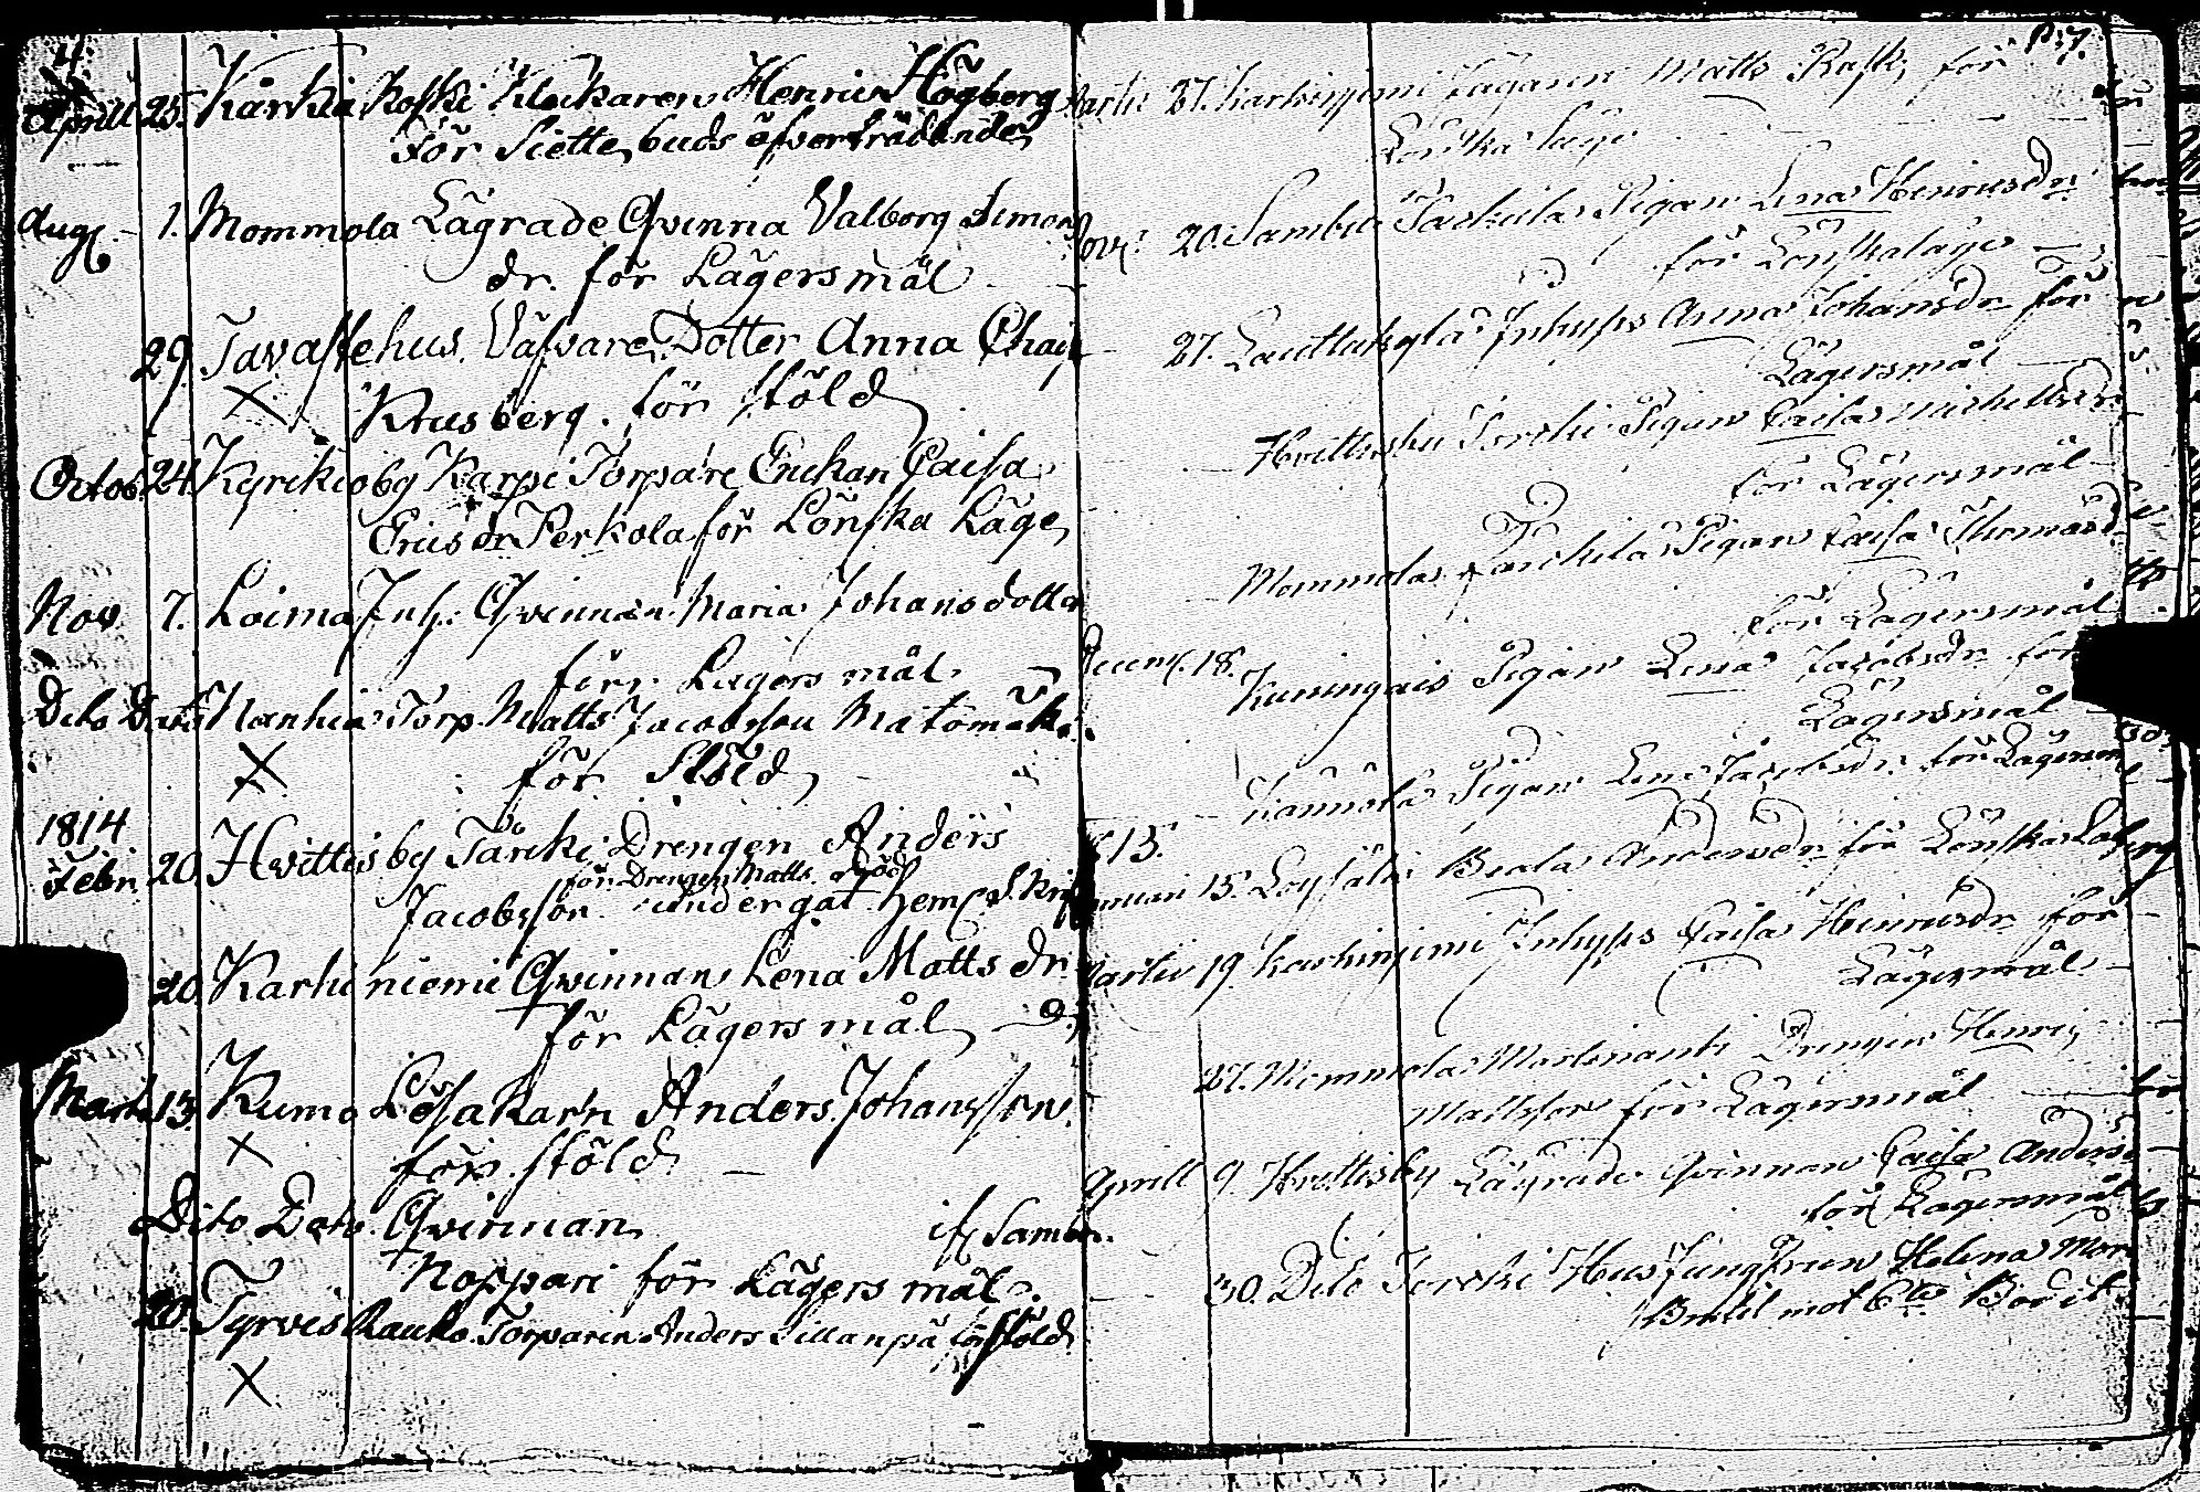 4.
Aprill 25. Karhia Koski Klockaren Henric Högberg
För Siette buds öfverträdande
Aug. 1. Mommola Lägrade Qvinna Valborg Simons
dr. för Lägersmål
29. Tavastehus Väfvare Dotter Anna Chaisa
Krusberg. för stöld
Octob. 24. Kyrkioby Karpi Torpare Enckan Caisa
Ericsdr Perkola för Lönska Läge
Nov. 7. Loima Inh. Qvinnan Maria Johansdotter
förr Lägersmål
Dito Dato Torp. Matts Jacobsson
för Stöld
1814
Febr. 20. Hvittisby Järki Drengen Anders
för Drengen Matts död
Jacobsson undergåt heml. Skrift
20. Karhiniemi Qvinnan Lena Matts dr.
för Lägersmål
Marti 13. Kumo Lösakarln Anders Johansson
för stöld
Dito Dato. Qvinnan if. Sambu
Noppari för Lägersmål.
20. Tyrvis Kauko Torparen Anders Sillanpä för stöld
p. 7.
Martii 27. Karhiniemi Matts Rask för
Lönska läge
Nov. 20. Sambu Paskula Pigan Lena Henricsdr
för Lönskaläge
27. Lauttakylä Inhyses Anna Johansdr för
Lägersmål
Hvittisby Pigan Caisa Michelsdr
för Lägersmål
Mommola Pigan Caisa Thomasd
för Lägersmål
Decemb. 18. Kuningais Pigan Lena Jacobsdr för
Lägersmål
Pigan Lena Jacobsdr för Lägersm
1815.
Januari 15. Beata Andersdr för Lönska Läg
Martii 19. Karhiniemi Inhyses Caisa Henricsdr för
Lägersmål
27. Mommola Drengen Henric
Mattsson för Lägersmål
Aprill 9. Hvittisby Lägrade Qvinnan Caisa Anders
för Lägersmål
30. Dito Hus Jungfrun Helena
Brutit mot 6te Budit